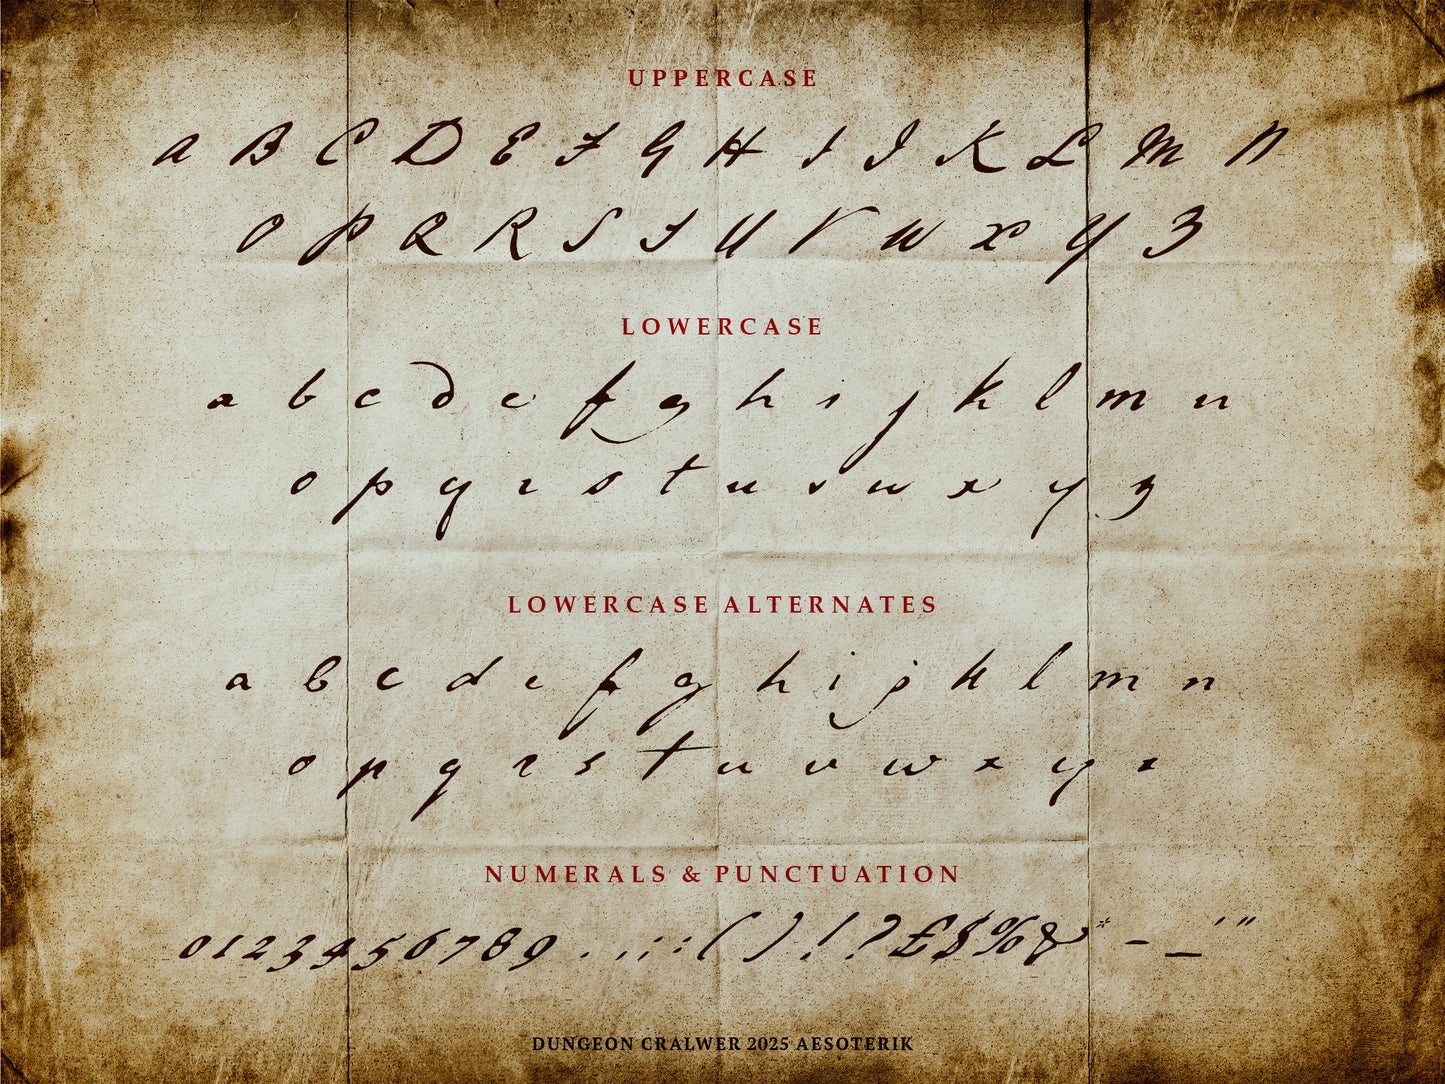 UPPERCASE
A B C D E F G H I J K L M N
O P Q R S T U V W X Y Z
LOWERCASE
a b c d e f g h i j k l m n
o p q r s t u v w x y z
LOWERCASE ALTERNATES
a b c d e f g h i j k l m n
o p q r s t u v w x y z
NUMERALS & PUNCTUATION
0123456789 . , ; : ( ) ! ? £ $ % & * - _ ' "
DUNGEON CRALWER 2025 AESOTERIK